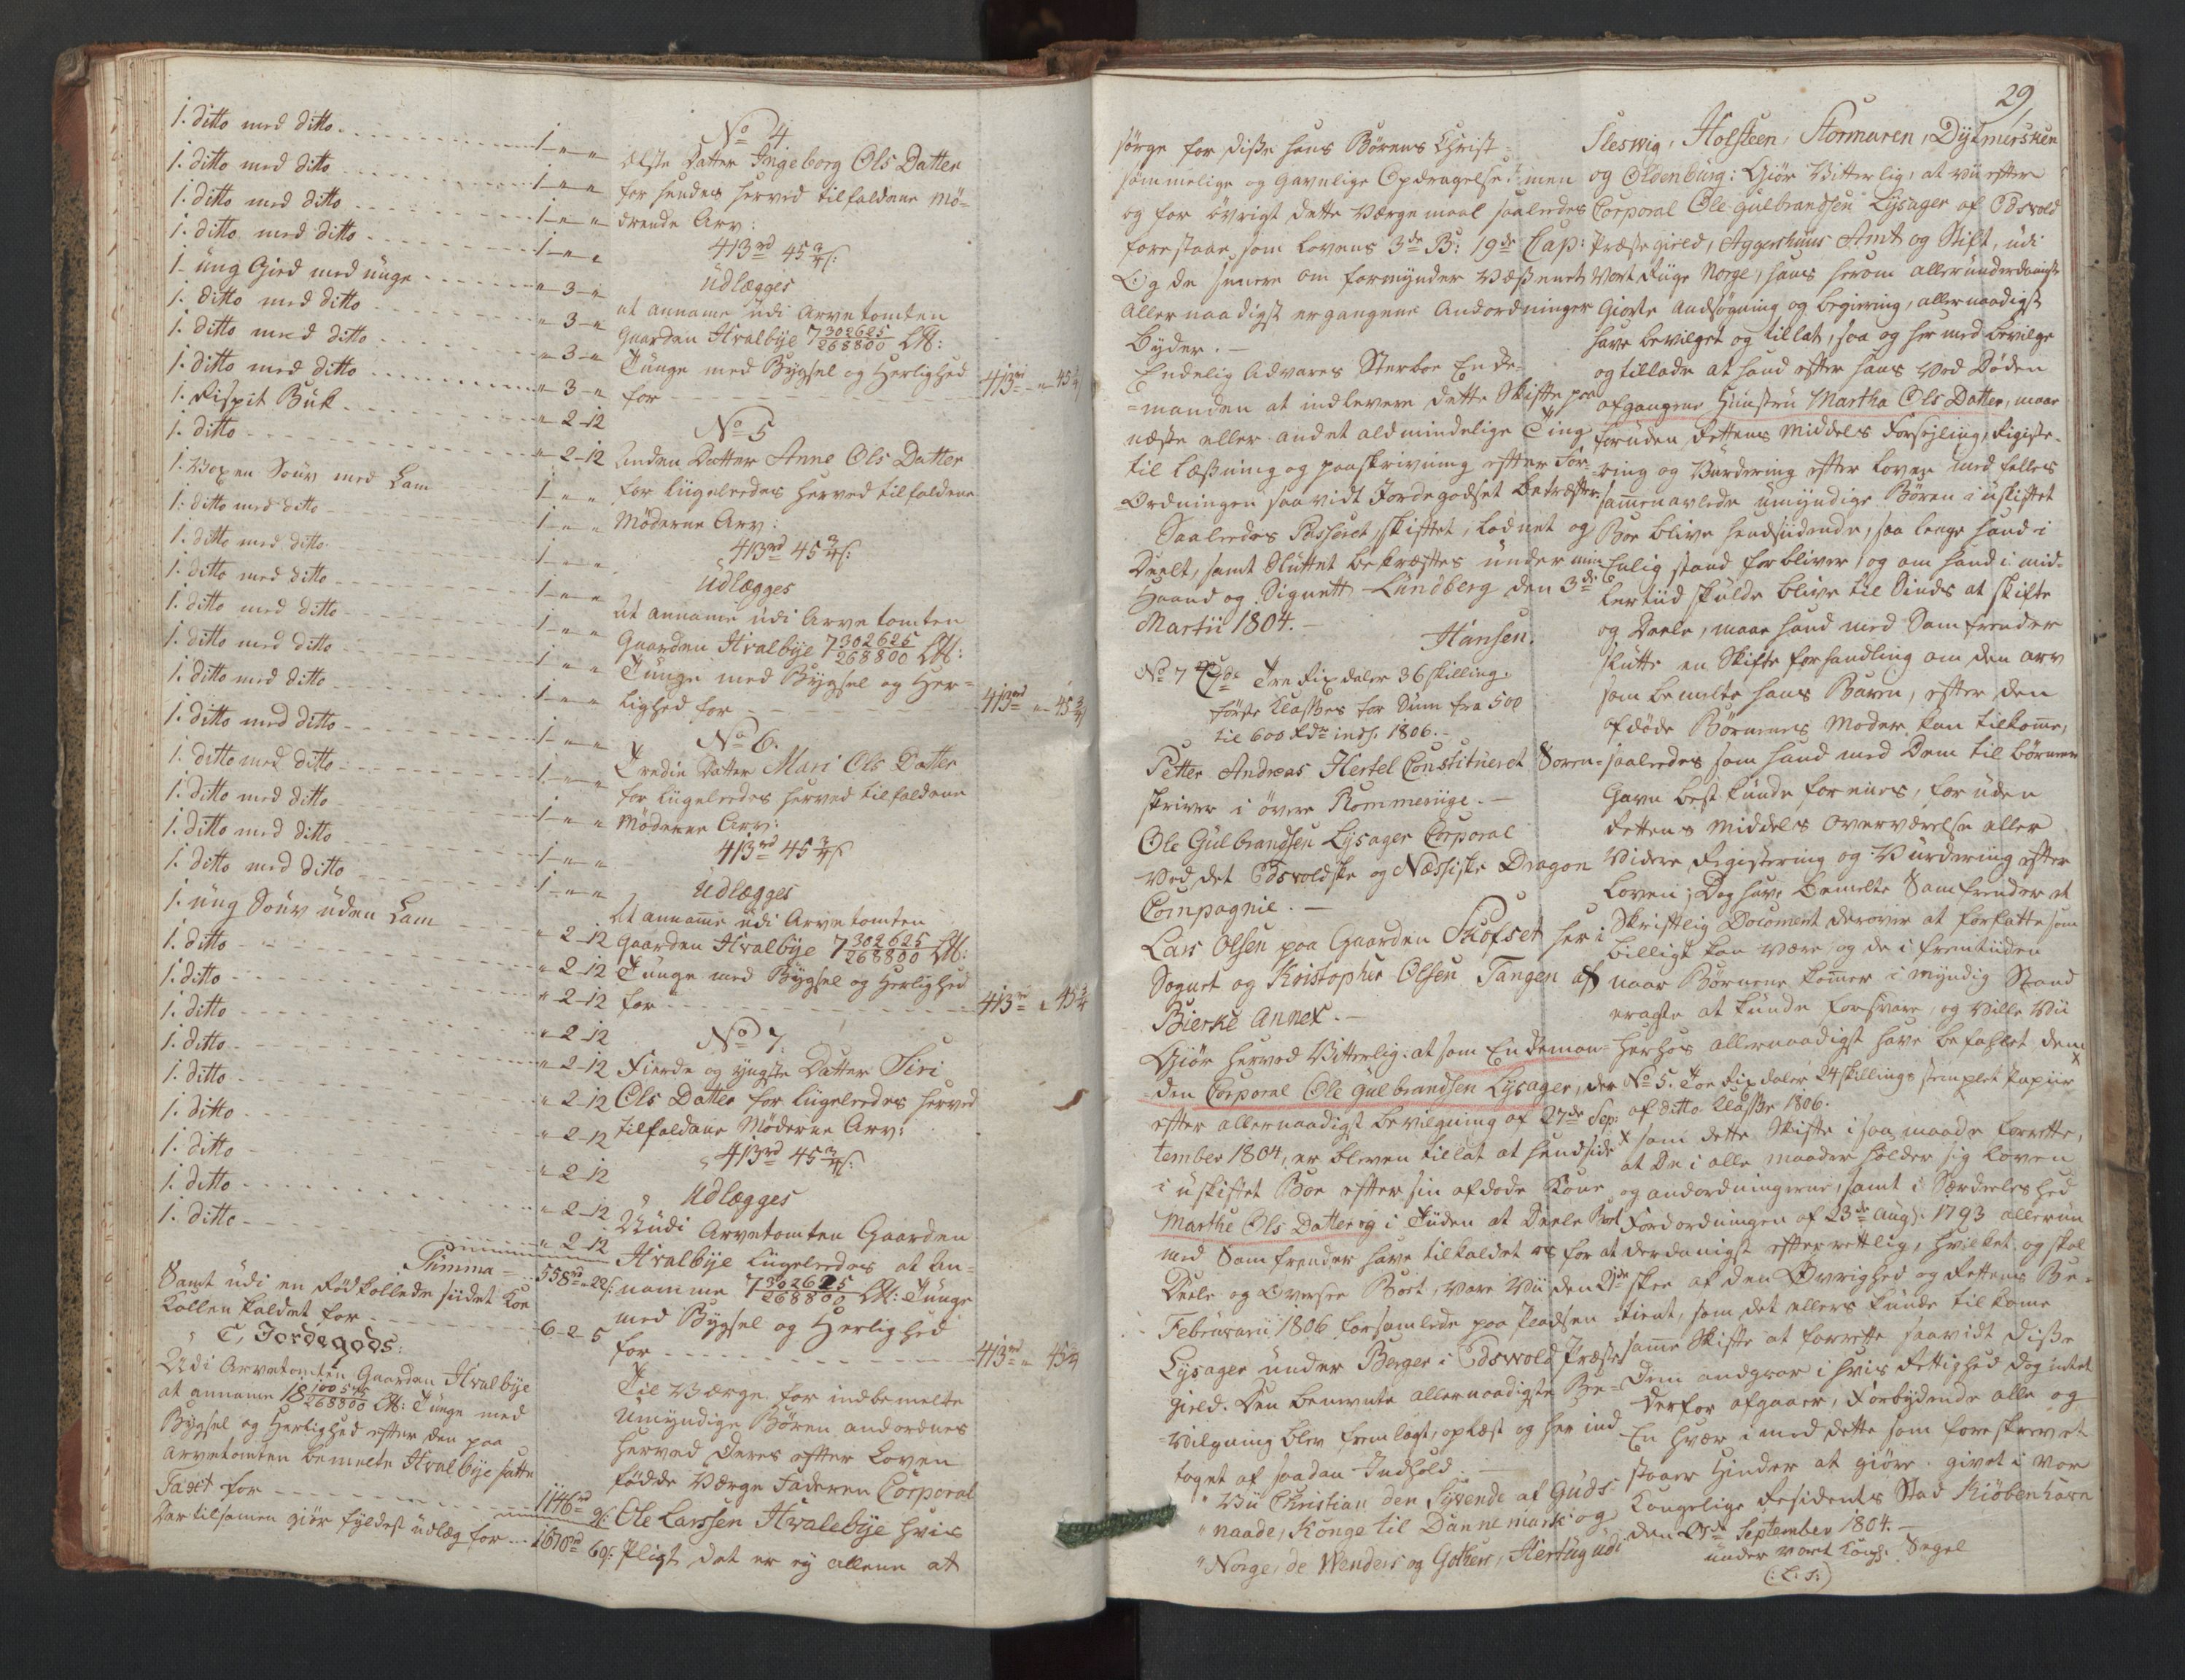 1. ditto med ditto - - - 1 - " - "
1. ditto med ditto - - - 1 - " - "
1. ditto med ditto - - - 1 - " - "
1. ditto med ditto - - - 1 - " - "
1. ung Gied med unge - - - " - 3 - "
1. ditto med ditto - - - " - 3 - "
1. ditto med ditto - - - " - 3 - "
1. ditto med ditto - - - " - 3 - "
1. Buk - - - " - 2 - 12
1. ditto - - - " - 2 - 12
1. Voxen Souv med Lam 1 " "
1. ditto med ditto - - - 1 " "
1. ditto med ditto 1 - " - "
1. ditto med ditto - - - 1 - " - "
1. ditto med ditto - - - 1 - " - "
1. ditto med ditto - - - 1 " "
1. ditto med ditto - - - 1 - " - "
1. ditto med ditto - - - 1 - " - "
1. ditto med ditto - - - 1 - " - "
1. ditto med ditto - - - 1 - " - "
1. ditto med ditto - - - 1 - " - "
1. ditto med ditto - - - 1 - " - "
1. ung Souv uden Lam - - - " - 2 - 12
1. ditto - - - " - 2 - 12
1. ditto - - - " - 2 - 12
1. ditto - - - " - 2 - 12
1. ditto - - - " - 2 - 12
1. ditto - - - " - 2 - 12
1. ditto - - - " - 2 - 12
1. ditto - - - " - 2 - 12
1. ditto - - - " - 2 - 12
1. ditto - - - " - 2 - 12
Summa - 558rd " 22s:
Samt udi en Rødkollede siidet Koe
Kollen kaldet for - - - 6 - 2 - 5
C, Jordegods:
Udi Arvetomten Gaarden Hvalbye
at anname 18 100575/268800 Lb: Tunge med
Bygsel og Herlighed efter den paa
arvetomten bemelte Hvalbye satte
Taxt for - - - 1146rd 9s:
Der tilsamen giør fyldest udlæg for - - 1670rd 69s:
No 4
Elste Datter Ingeborg Ols Datter
for hendes herved tilfaldene Mø-
drende Arv:
413rd 45 3/4 s:
Udlægges
at anname udi Arvetomten
Gaarden Hvalbye 7 302625/268800 Lb:
Tunge med Bygsel og Herlighed
for - - - 413rd " 45 3/4
No 5
Anden Datter Anne Ols Datter
for liigeledes herved tilfaldene
Møderne Arv:
413rd 45 3/4 s:
Udlægges
At anname udi Arvetomten
Gaarden Hvalbye 7 302625/268800 Lb:
Tunge med Bygsel og Her-
lighed for - - - 413rd " 45 3/4
No 6.
Tredie Datter Mari Ols Datter
for liigeledes herved tilfaldene
Møderne Arv:
413rd 45 3/4 s
Udlægges
At anname udi Arvetomten
Gaarden Hvalbye 7 302625/268800 Lb:
Tunge med Bygsel og Herlighed
for - - - 413rd " 45 3/4
No 7.
Fierde og yngste Datter Siri
Ols Datter for liigeledes herved
tilfaldene Møderne Arv:
413rd 45 3/4 s:
Udlægges
Udi Arvetomten Gaarden
Hvalbye liigeledes at An-
namme 7 302625/268800 Lb: Tunge
med Bygsel og Herlighed
for - - - 413rd " 45 3/4
Til Værge for indbemelte
Umyndige Børen andordnes
herved Deres efter Loven
fødde Værge Faderen Corporal
Ole Larssen Hvalebye hvis
Pligt det er ey allene at
29
sørge for disse hans Børens Christ-
sømmelige og Gavnlige Opdragelse: men
og for øvrigt dette Værgemaal saaledes
forestaae som Lovens 3de B: 19de Cap:
Og de senere om formynder Væsenet
Allernaadigst ergangene Andordninger
Byder. -
Endelig Advares Sterboe Enke-
manden at indlevere dette Skifte paa
næste eller andet aldmindelige Ting
til Læsning og paaskrivning efter For-
Ordningen saavidt Jordegodset betræffer.
Saaledes Passeret, skiftet, Lodnet og
Deelt, samt Sluttet bekræftes under min
Haand og Signett Lundberg den 3de
Martii 1804. -
Hansen.
No 7 Tre Rixdaler 36 skilling.
første Classes for Sum fra 500
til 600 Rdr inds. 1806. -
Petter Andreas Hertel Constitueret Soren-
skriver i øvere Rommeriige. -
Ole Gulbrandsen Lysager Corporal
ved det Edsvoldske og Næssiske Dragon
Compagnie. -
Lars Olsen paa Gaarden Skofset her i
Sognet og Kristopher Olsen Tangen af
Bierke Annex. -
Giør herved Vitterlig: at som Enkeman-
den Corporal Ole Gulbrandsen Lysager, der
efter allernaadigst bevilgning af 27de Sep-
tember 1804, er bleven tillat at hendside
i uskiftet Boe efter sin afdøde Kone
Marthe Ols Datter og i Tiiden at Deele Boet
med Samfrender have tilkaldet os for at
Deele og Oversee Boet, vare Vii den
Februarii 1806 forsamlede paa Pladsen
Lysager under Berger i Edswold Præste
gield. Den benevnte allernaadigste Be-
vilgning blev fremlagt, oplæst og her ind
taget af saadan Indhold. -
" Vii Christian den Syvende af Guds
" naade, Konge til Dannemark og
" Norge, de Wenders og Gothers, Hertug udi
Sleswig, Holsteen, Stormaren, Dytmersken
og Oldenburg: Giør Vitterlig, at vii efter
Corporal Ole Gulbrandsen Lysager af Edsvold
Præstegield, Aggershuus Amt og Stift, udi
Vort Riige Norge, hans herom allerunderdanigst
Giorte andsøgning og begiering, allernaadigst
have bevilget og tillat, saa og hermed bevilge
og tillade at hand efter hans ved Døden
afgangene Hunstru Martha Ols Datter, maae
foruden Rettens Middels Forsejling, Rigiste-
ring og Vurdering efter loven med felles
samenavlede umyndige Børen i uskiftet
Boe blive hendsiddende, saa lenge hand i
Enlig stand forbliver, og om hand i mid-
lertiid skulde blive til Sinds at skifte
og Deele, maae hand med Samfrender
slutte en Skifteforhandling om den arv
som bemelte hans Børen, efter den
afdøde Børnenes Moder kan tilkome,
saaledes som hand med Dem til børnenes
Gavn best kunde forenes, foruden
Rettens Middels Overværelse eller
Videre Rigistering og Vurdering efter
Loven; Dog have bemelte Samfrender et
Skriftlig Document derover at forfatte som
billigt kan være og de i fremtiiden
naar Børnene komer i myndig Stand
eragte at kunde forsvare, og ville Vii
herhos allernaadigst have befahlet dem x
No 5. Toe Rixdaler 24 skillings stemplet Papiir
af ditto Classe 1806.
x som dette Skifte i saa maade forrette,
at De i alle maader holder sig Loven
og andordningerne, samt i Særdeleshed
Fordordningen af 23de Augs: 1793 allerun
derdanigst efterrettlig, hvilket og skal
skee af den Øvrighed og Rettens Be-
tient, som det ellers kunde tilkome
same Skifte at forrette saavidt disse
Dem andgaar i hvis Rettighed dog intet
derfor afgaaer, Forbydende alle og
En hver imod dette som foreskrevet
staaer Hinder at giøre. givet i vor
Kongelige Residents Stad Kiøbenhavn
den September 1804. -
under vort Kongl. Segel
(:L: S:)